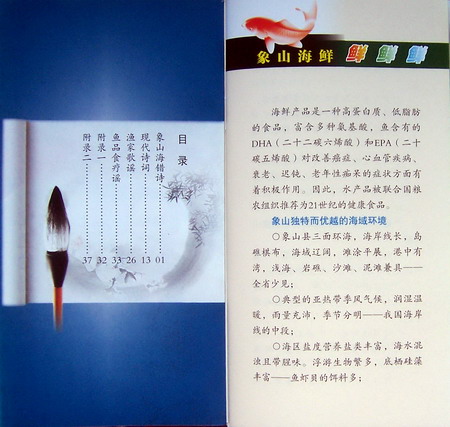 目录
象山海错诗 01
现代诗词 13
渔家歌谣 26
鱼品食疗谣 33
附录一 32
附录二 37
象山海鲜 鲜 鲜 鲜
海鲜产品是一种高蛋白质、低脂肪
的食品，富含多种氨基酸，鱼含有的
DHA（二十二碳六烯酸）和EPA（二十
碳五烯酸）对改善癌症、心血管疾病、
衰老、迟钝、老年性痴呆的症状方面有
着积极作用。因此，水产品被联合国粮
农组织推荐为21世纪的健康食品。
象山独特而优越的海域环境
○象山县三面环海，海岸线长，岛
礁棋布，海域辽阔，滩涂平展，港中有
湾，浅海、岩礁、沙滩、泥滩兼具——
全省少见；
○典型的亚热带季风气候，润湿温
暖，雨量充沛，季节分明——我国海岸
线的中段；
○海区盐度营养盐类丰富，海水混
浊且带腥味。浮游生物繁多，底栖硅藻
丰富——鱼虾贝的饵料多；